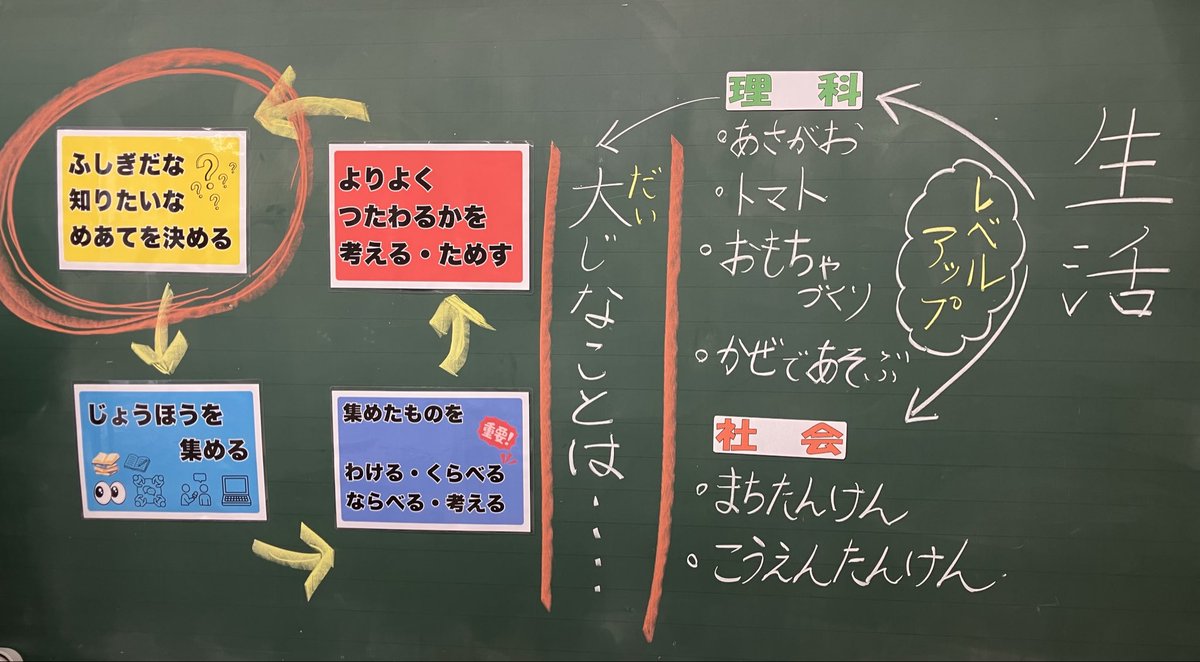 生活
レベル
アップ
理科
○あさがお
○トマト
○おもちゃ
づくり
○かぜであそぶ
社会
○まちたんけん
○こうえんたんけん
だい
大じなことは・・・・・
ふしぎだな
知りたいな
めあてを決める
じょうほうを
集める
集めたものを
重要!
わける・くらべる
ならべる・考える
よりよく
つたわるかを
考える・ためす